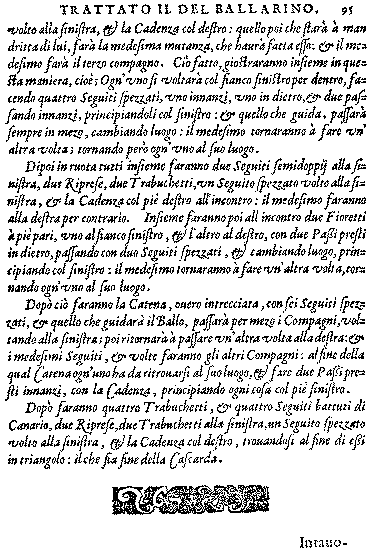 TRATTATO II. DEL BALLARINO. 95
volto alla sinistra, & la Cadenza col destro: quello poi che starà à man
dritta di lui, farà la medesima mutanza, che haurà fatta esso: & il me-
desimo farà il terzo compagno. Ciò fatto, giostraranno insieme in que-
sta maniera, cioè; Ogn'vno si voltarà col fianco sinistro per dentro, fa-
cendo quattro Seguiti spezzati, vno innanzi, vno in dietro, & due pas-
sando innanzi, principiandoli col sinistro: & quello che guida, passarà
sempre in mezo, cambiando luogo: il medesimo tornaranno à fare vn'
altra volta; tornando però ogn'vno al suo luogo.
Dipoi in ruota tutti insieme faranno due Seguiti semidoppij alla si-
nistra, due Riprese, due Trabuchetti, vn Seguito spezzato volto alla si-
nistra, & la Cadenza col piè destro all'incontro: il medesimo faranno
alla destra per contrario. Insieme faranno poi all'incontro due Fioretti
à piè pari, vno al fianco sinistro, & l'altro al destro, con due Passi presti
in dietro, passando con due Seguiti spezzati, & cambiando luogo, prin-
cipiando col sinistro: il medesimo tornaranno à fare vn'altra volta, tor-
nando ogn'vno al suo luogo.
Dopò ciò faranno la Catena, ouero intrecciata, con sei Seguiti spez-
zati, & quello che guidarà il Ballo, passarà per mezo i Compagni, vol-
tando alla sinistra: poi ritornarà à passare vn'altra volta alla destra: &
i medesimi Seguiti, & volte faranno gli altri Compagni: al fine della
qual Catena ogn'uno ha da ritrouarsi al suo luogo, & fare due Passi pre-
sti innanzi, con la Cadenza, principiando ogni cosa col piè sinistro.
Dopò faranno quattro Trabuchetti, & quattro Seguiti battuti di
Canario, due Riprese, due Trabuchetti alla sinistra, un Seguito spezzato
volto alla sinistra, & la Cadenza col destro, trouandosi al fine di essi
in triangolo: il che fia fine della Cascarda.
Intauo-